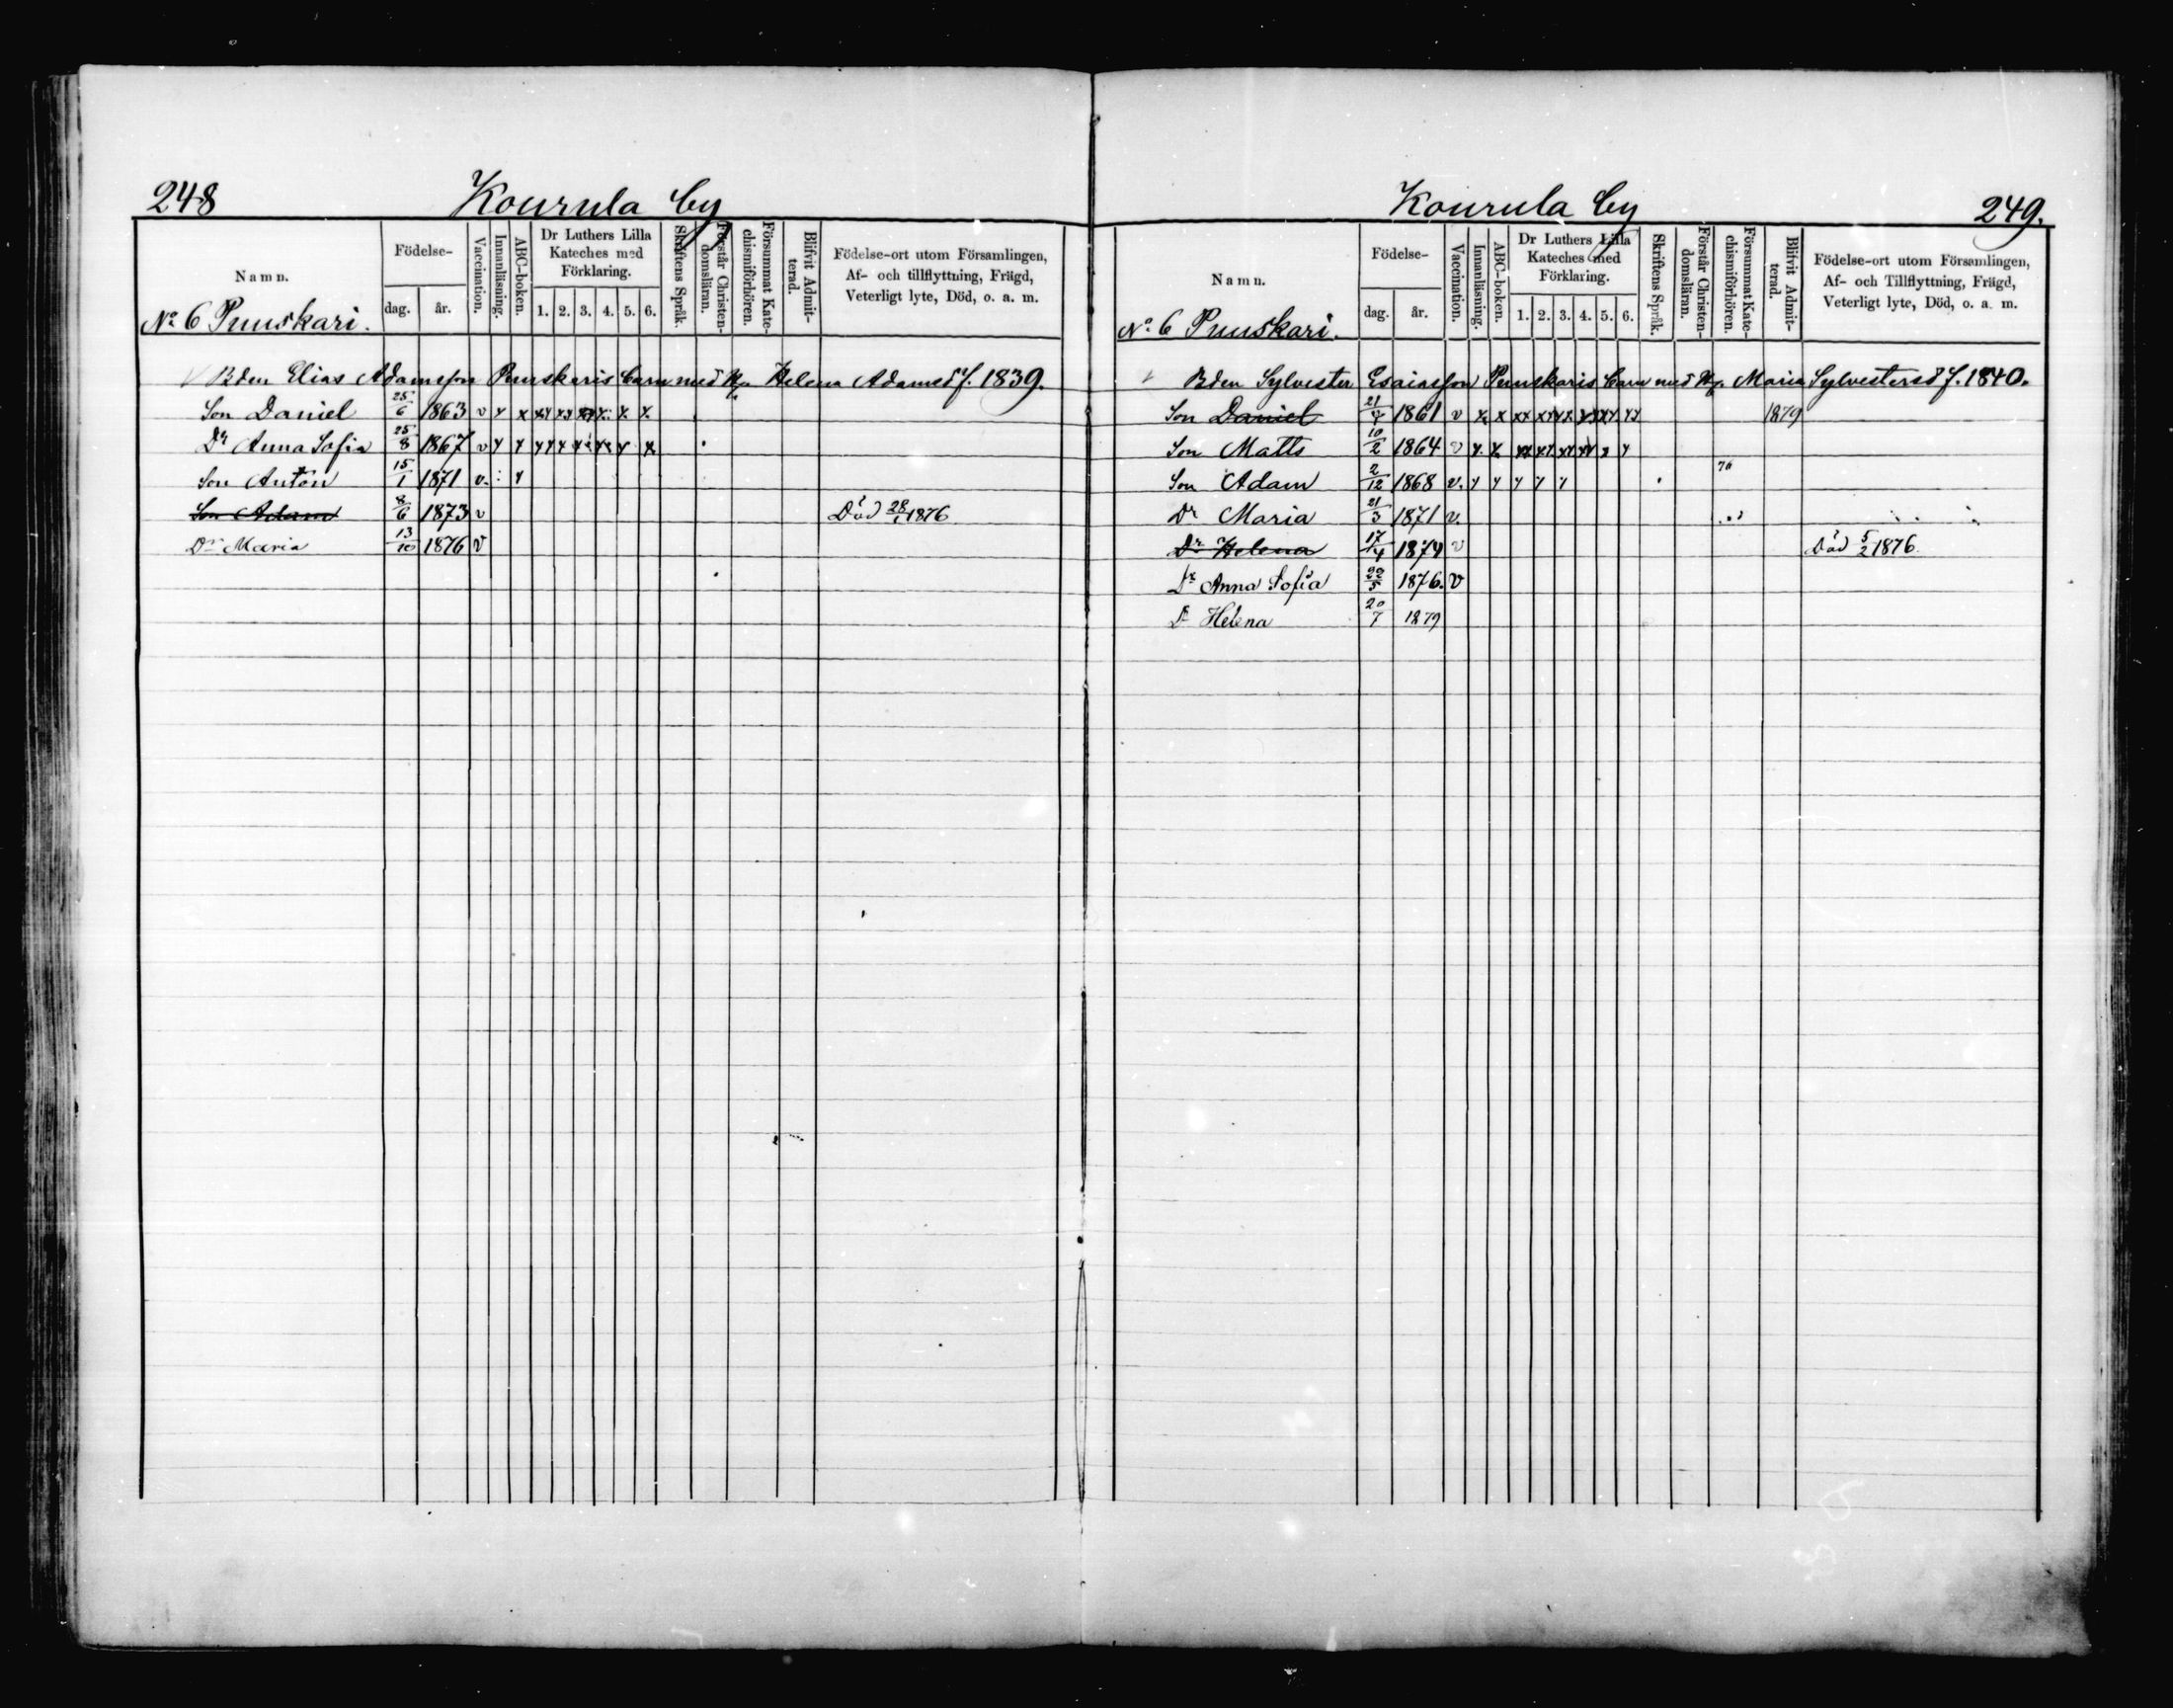 248 Kourula by
Namn. Födelse- dag. år. Vaccination. Innanläsning. ABC-boken. Dr Luthers Lilla Kateches med Förklaring. 1. 2. 3. 4. 5. 6. Skriftens Språk. Förstår Christendomsläran. Försummat Katechismiförhören. Blifvit Admitterad. Födelse-ort utom Församlingen, Af- och tillflyttning, Frägd, Veterligt lyte, Död, o. a. m.
No 6 Puuskari.
Bden Elias Adamsson Puuskaris barn med Hu Helena Adamsdr f. 1839.
Son Daniel 25/6 1863 v x x xx xx xx x x x
Dr Anna Sofia 25/8 1867 v x x xx x x x x x
Son Anton 15/1 1871 v. x
Son Adam 8/6 1873 v Död 28/1 1876
Dr Maria 13/10 1876 v
Kourula by 249.
Namn. Födelse- dag. år. Vaccination. Innanläsning. ABC-boken. Dr Luthers Lilla Kateches med Förklaring. 1. 2. 3. 4. 5. 6. Skriftens Språk. Förstår Christendomsläran. Försummat Katechismiförhören. Blifvit Admitterad. Födelse-ort utom Församlingen, Af- och Tillflyttning, Frägd, Veterligt lyte, Död, o. a. m.
No 6 Puuskari.
Bden Sylvester Esaiasson Puuskaris barn med Hu Maria Sylvestersd f. 1840.
Son Daniel 21/7 1861 v x x xx xx xx xx xx 1879
Son Matts 10/2 1864 v x x xx xx xx xx x x
Son Adam 2/12 1868 v. x x x x x 76
Dr Maria 21/3 1871 v.
Dr Helena 17/4 1874 v Död 5/2 1876.
Dr Anna Sofia 22/5 1876. v
Dr Helena 20/7 1879